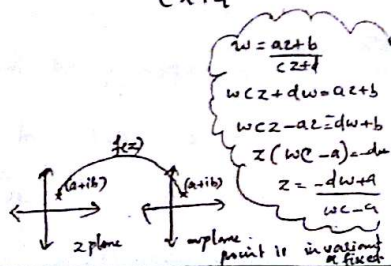 cz+d
w = az+b
cz+d
wcz + dw = az+b
wcz - az = dw+b
z (wc-a) = -dw
z = -dw+a
wc-a
f(z)
(a+ib) (a+ib)
z plane wplane.
point is invariant
a fixed